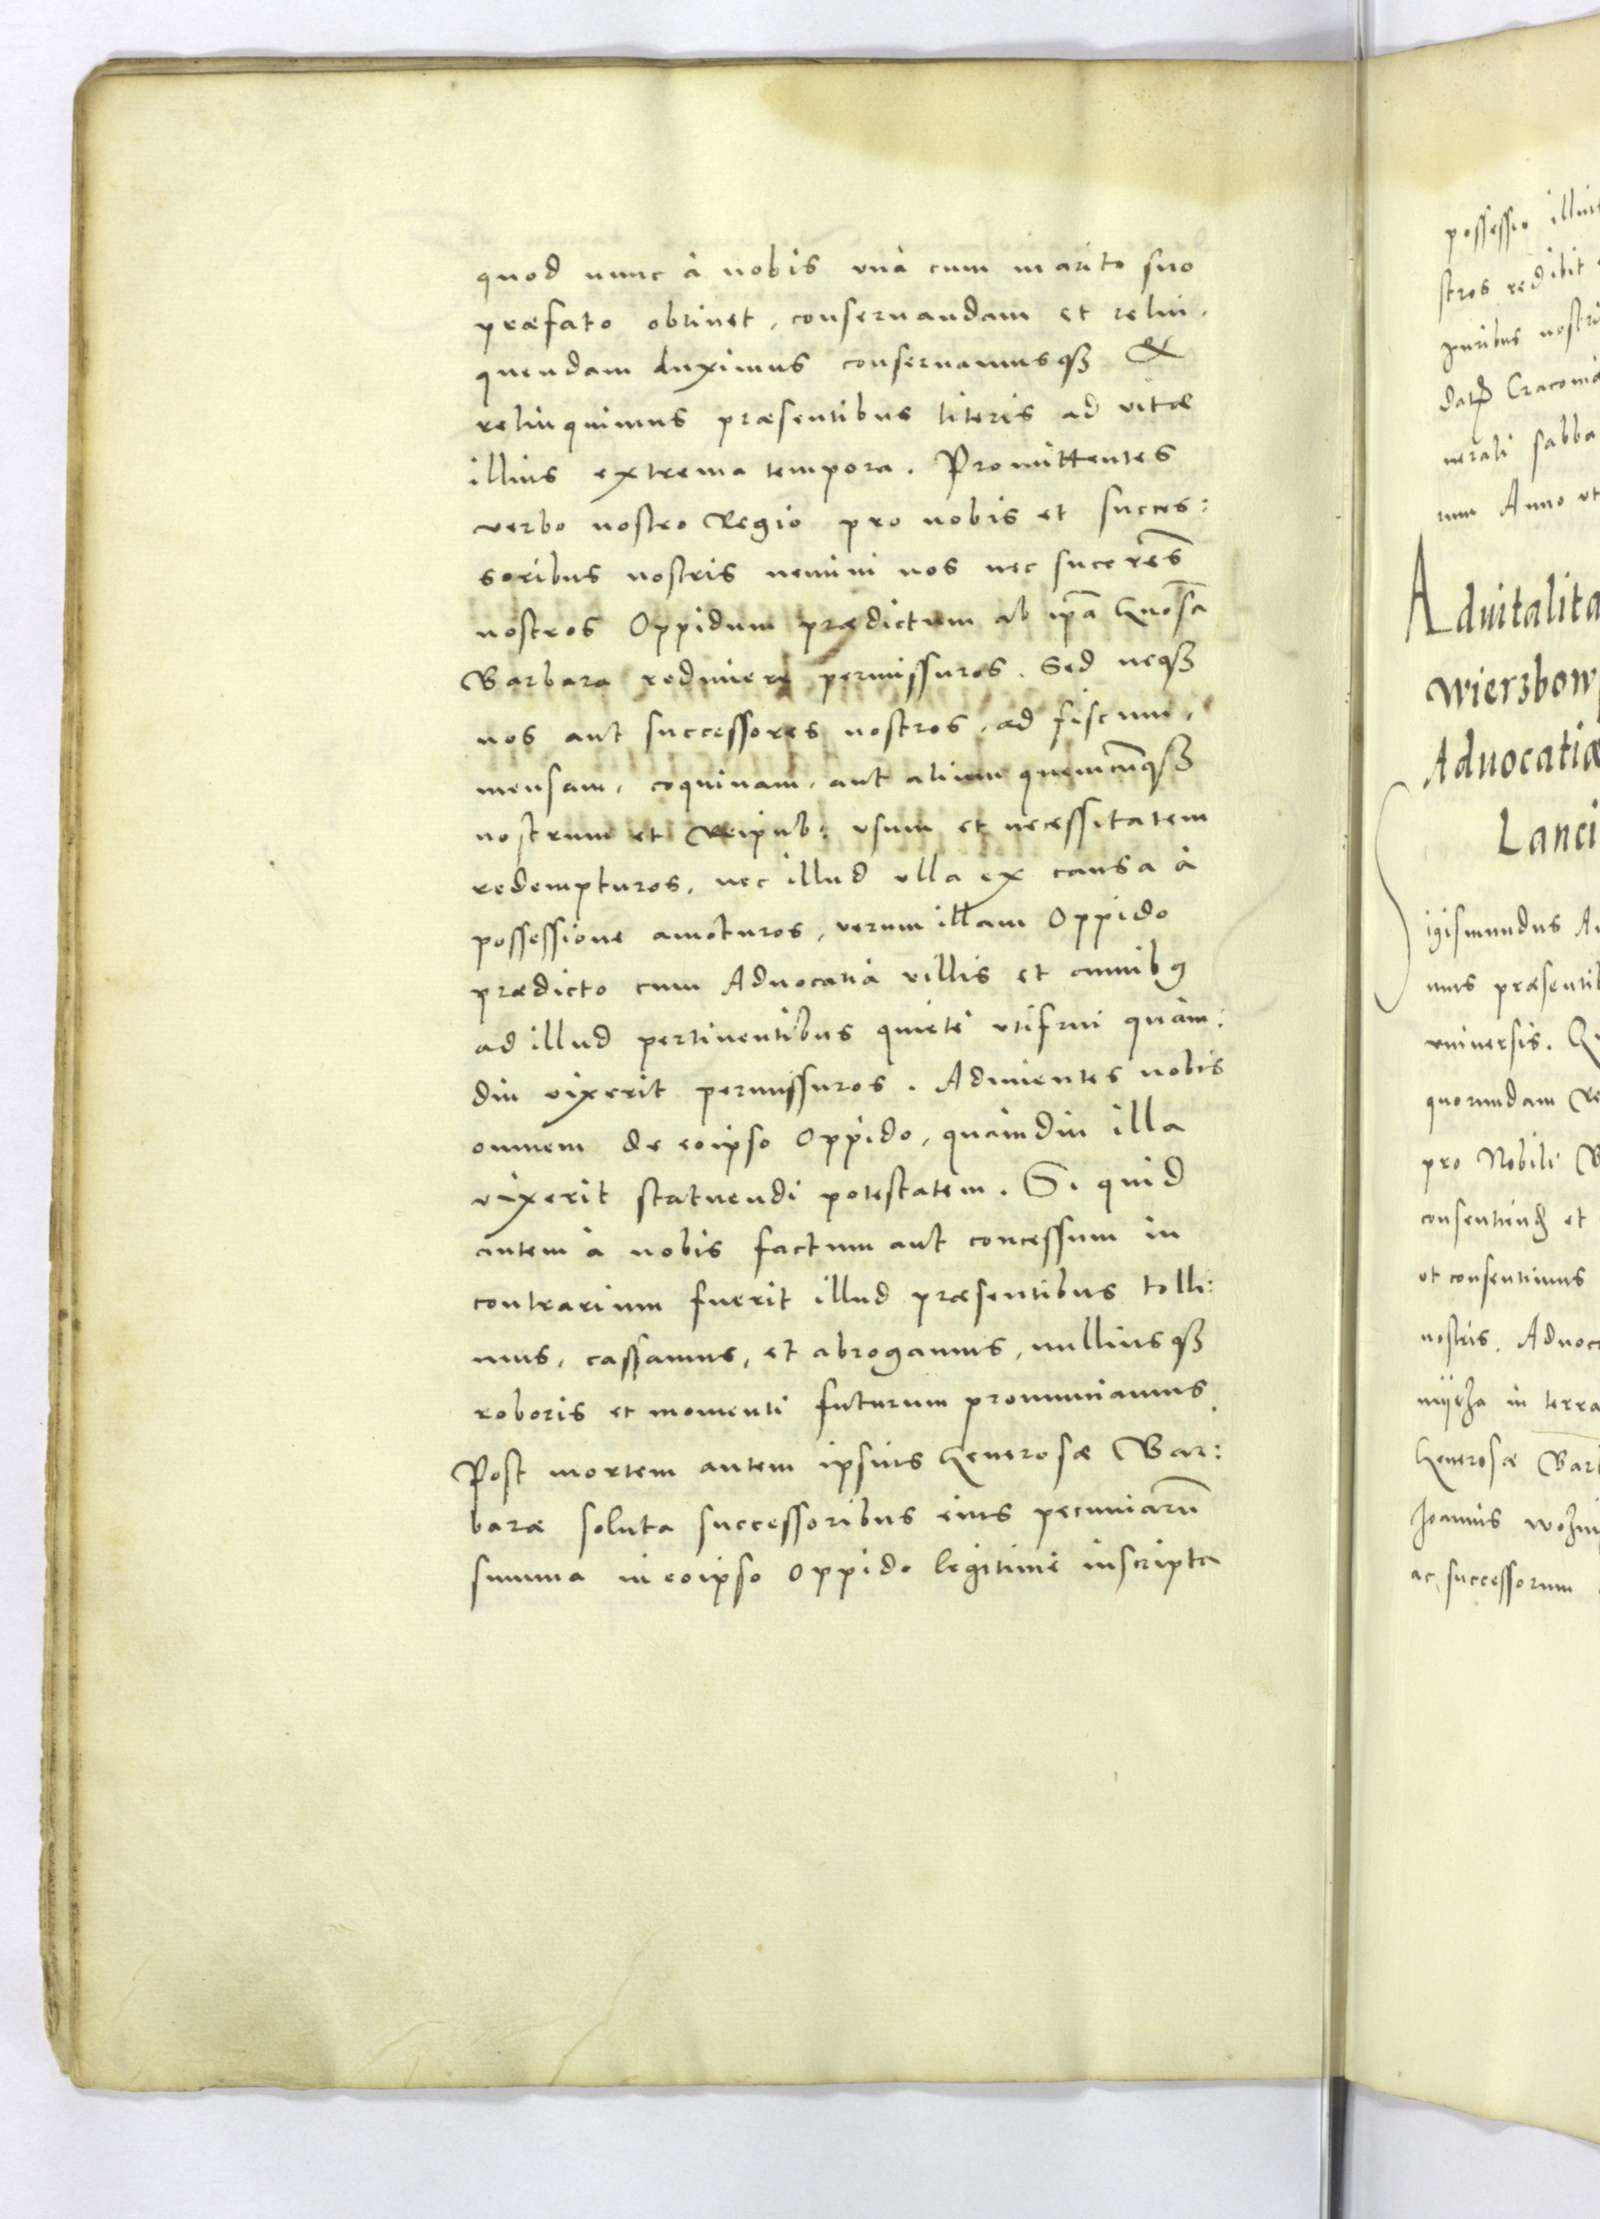 quod nunc à nobis vnà cum marito suo
præfato obtinet, conseruandam et relin,
quendam duximus conseruamusqȝ &
relinquimus præsentibus literis ad vitæ
illius extrema tempora. Promittentes
verbo nostro Regio pro nobis et succes:
soribus nostris nemini nos nec succeres̃
nostros Oppidum prædictum ab ip̃a Gnosã
Barbara redimere permissuros. Sed neqȝ
nos aut successores nostros, ad fiscum,
mensam, coquinam, aut alium quemcũqȝ
nostrum et Reipub: vsum et necessitatem
redempturos, nec illud vlla ex causa à
possessione amoturos, verum illam Oppido
prædicto cum Aduocatia villis et omnibꝰ
ad illud pertinentibus quietè vtifrui quàm:
diu vixerit permissuros. Adimentes nobis
omnem de eoipso Oppido, quàmdiu illa
vixerit statuendi potestatem. Si quid
autem à nobis factum aut concessum in
contrarium fuerit illud præsentibus tolli:
mus, cassamus, et abrogamus, nulliusqȝ
roboris et momenti futurum pronunciamus.
Post mortem autem ipsius Generosæ Bar:
baræ soluta successoribus eius pecuniarũ
summa in eoipso Oppido legitimè inscripta
possessio
stros redibit
juribus nostri
Cracouiæ
nerali sabba
rum Anno vt
Aduitalita
wierzbow
Aduocatiæ
Lanci
Sigismundus Au
mus præsentib
vniuersis.
quorundam
pro Nobili
et
vt consentimus
nostris. Aduoc
in terra
Generosæ Barb
Joannis
ac successorum